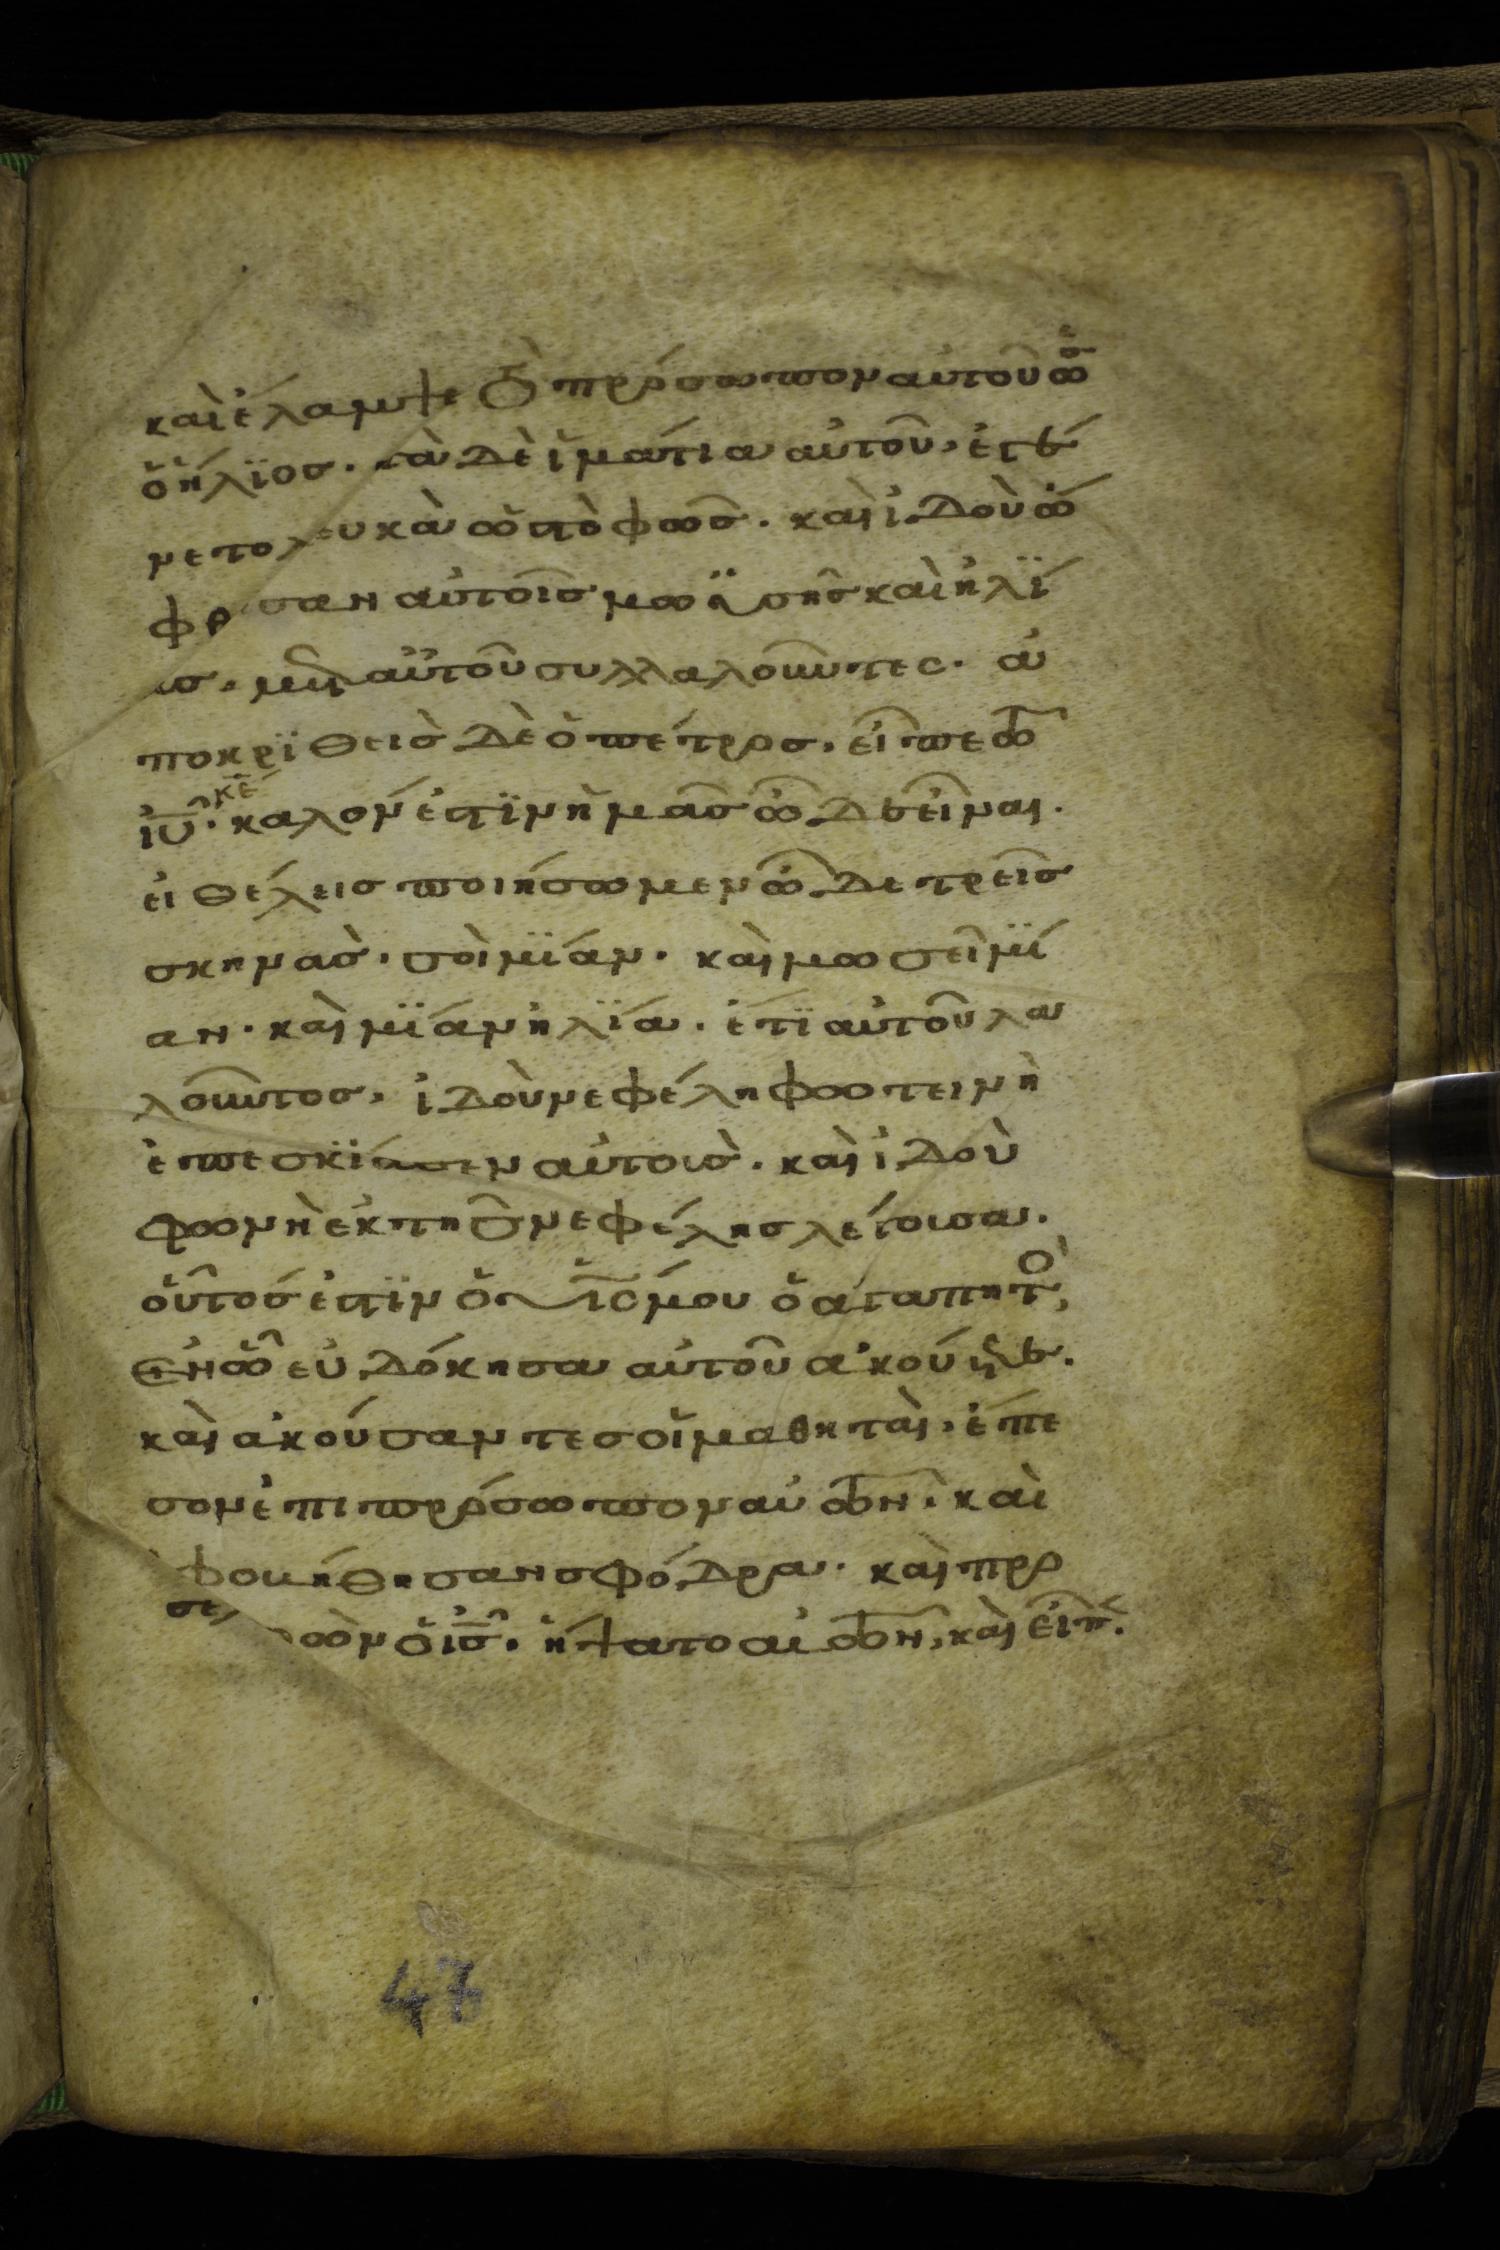 καὶ ἔλαμψε τὸ πρόσωπον αὐτοῦ ὡς
ὁ ἥλϊος· τὰ δὲ ἱμάτια αὐτοῦ, ἐγέ
νετο λευκὰ ὡς τὸ φῶς· καὶ ἰδοὺ ὤ
φθησαν αὐτοῖς μωϋσῆς καὶ ἠλΐ
ας, μετ αὐτοῦ συλλαλοῦντες· ἀ
ποκρϊθεὶς δὲ ὁ πέτρος, εἶπε τῶ
ἰῦ· κε καλόν ἐστϊν ἡμᾶς ὧδε εἶναι·
εἰ θέλεις ποιήσωμεν ὧδε τρεῖς
σκηνὰς· σοὶ μΐαν· καὶ μωσεῖ μΐ
αν· καὶ μΐαν ἠλΐα· ἔτϊ αὐτοῦ λα
λοῦντος, ἰδοὺ νεφέλη φωτεινὴ
ἐπεσκΐασεν αὐτοὺς· καὶ ἰδοὺ
φωνὴ ἐκ τῆς νεφέλης λέγουσα·
οὗτός ἐστϊν ὁ υἱς μου ὁ ἀγαπητὸ,
ἐν ὧ εὐδόκησα αὐτοῦ ἀκούετε·
καὶ ἀκούσαντες οἱ μαθηταὶ, ἔπε
σον ἐπι πρόσωπον αὐτῶν· καὶ
φοβήθησαν σφόδρα· καὶ προ
σε ὼν ὁ ις· ἥψατο αὐτῶν, καὶ εἶπ·
47